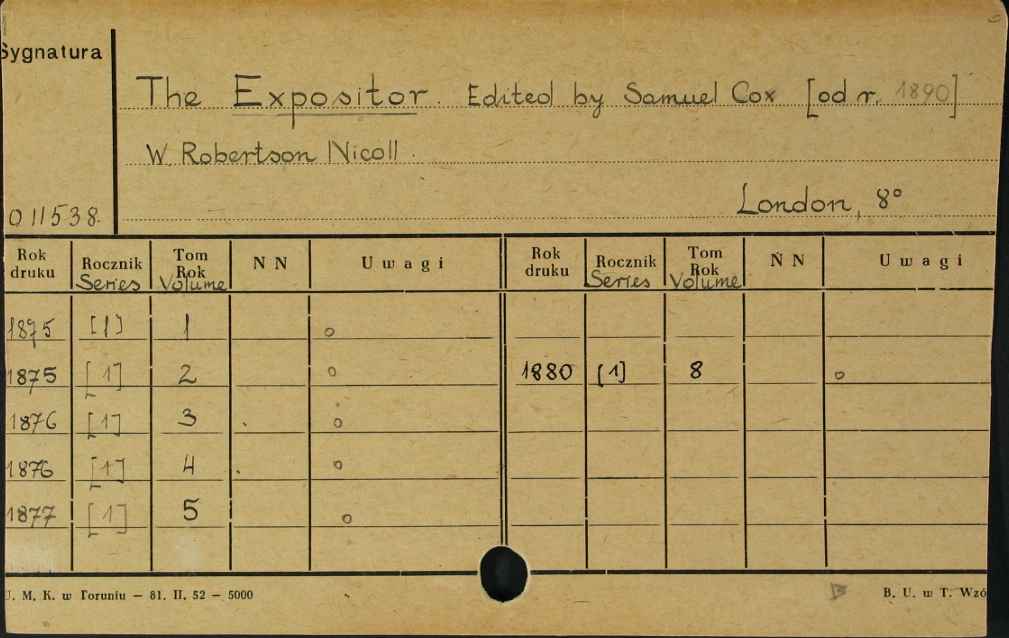 Sygnatura
The Expositor. Edited by Samuel Cox [od r. 1890]
W. Robertson Nicoll.
London, 8°
011538.
Rok druku Rocznik Series Tom Rok Volume N N Uwagi Rok druku Rocznik Series Tom Rok Volume N N Uwagi
1875 [1] 1 o
1875 [1] 2 o 1880 [1] 8 o
1876 [1] 3 o
1876 [1] 4 o
1877 [1] 5 o
U. M. K. w Toruniu – 81. II. 52 – 5000 B. U. w T. Wzó